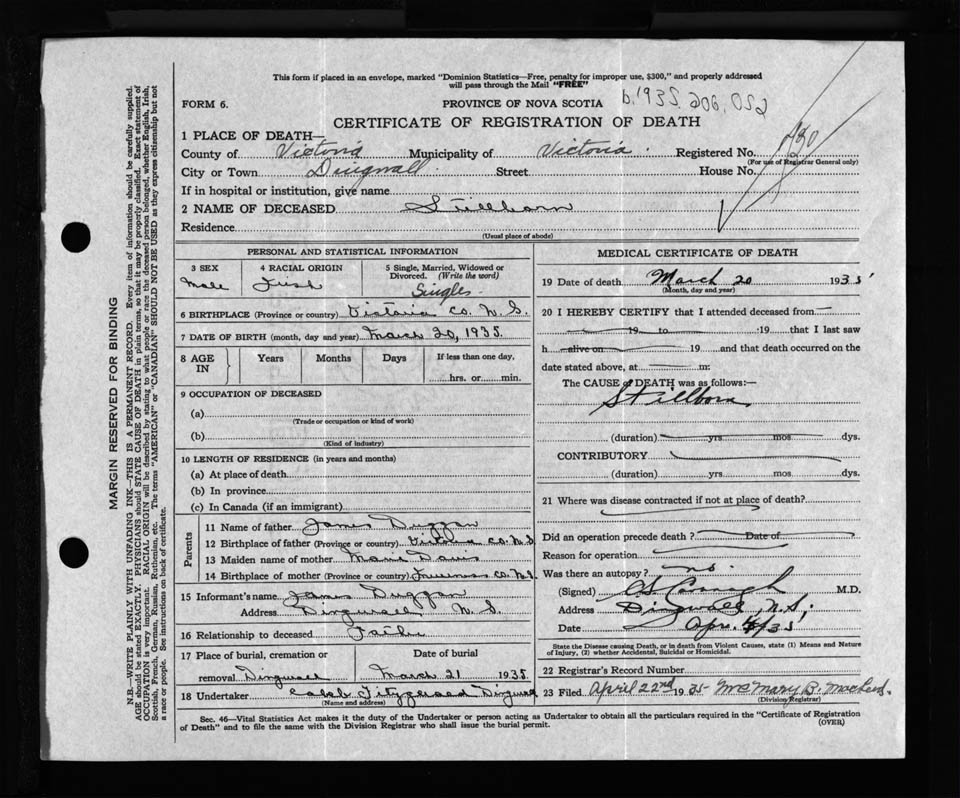 This form if placed in an envelope, marked "Dominion Statistics—Free, penalty for improper use, $300," and properly addressed
will pass through the Mail "FREE"
FORM 6.
PROVINCE OF NOVA SCOTIA
b. 1935. 206, 052
CERTIFICATE OF REGISTRATION OF DEATH
1 PLACE OF DEATH—
County of Victoria Municipality of Victoria. Registered No.
(For use of Registrar General only)
City or Town Dingwall. Street House No.
If in hospital or institution, give name
2 NAME OF DECEASED Stillborn
Residence
(Usual place of abode)
PERSONAL AND STATISTICAL INFORMATION
3 SEX
Male
4 RACIAL ORIGIN
Irish
5 Single, Married, Widowed or Divorced. (Write the word)
Single
6 BIRTHPLACE (Province or country) Victoria Co. N.S.
7 DATE OF BIRTH (month, day and year) March 20, 1935.
8 AGE IN Years Months Days If less than one day,
hrs. or min.
9 OCCUPATION OF DECEASED
(a)
(Trade or occupation or kind of work)
(b)
(Kind of industry)
10 LENGTH OF RESIDENCE (in years and months)
(a) At place of death
(b) In province
(c) In Canada (if an immigrant)
Parents
11 Name of father James Duggan
12 Birthplace of father (Province or country) Victoria Co. N.S.
13 Maiden name of mother Davis
14 Birthplace of mother (Province or country) Inverness Co. N.S.
15 Informant's name James Duggan
Address Dingwall N.S.
16 Relationship to deceased Father
17 Place of burial, cremation or removal Dingwall
Date of burial
March 21 1935.
18 Undertaker Fitzgerald Dingwall
(Name and address)
MEDICAL CERTIFICATE OF DEATH
19 Date of death March 20 1935
(Month, day and year)
20 I HEREBY CERTIFY that I attended deceased from
19 to :19 that I last saw
h alive on 19 and that death occurred on the
date stated above, at m:
The CAUSE of DEATH was as follows:—
Stillborn
(duration) yrs mos dys.
CONTRIBUTORY
(duration) yrs mos dys.
21 Where was disease contracted if not at place of death?
Did an operation precede death? Date of
Reason for operation
Was there an autopsy? no.
(Signed) M.D.
Address Dingwall, N.S.,
Date Apr. /35
State the Disease causing Death, or in death from Violent Causes, state (1) Means and Nature
of Injury, (2) whether Accidental, Suicidal or Homicidal.
22 Registrar's Record Number
23 Filed April 22nd 1935 Mrs Mary B. MacLeod.
(Division Registrar)
Sec. 46—Vital Statistics Act makes it the duty of the Undertaker or person acting as Undertaker to obtain all the particulars required in the "Certificate of Registration
of Death" and to file the same with the Division Registrar who shall issue the burial permit.
(OVER)
MARGIN RESERVED FOR BINDING
N.B.—WRITE PLAINLY WITH UNFADING INK—THIS IS A PERMANENT RECORD. Every item of information should be carefully supplied.
AGE should be stated EXACTLY. PHYSICIANS should STATE CAUSE OF DEATH in plain terms, so that it may be properly classified. Exact statement of
OCCUPATION is very important. RACIAL ORIGIN will be described by stating to what people or race the deceased person belonged, whether English, Irish,
Scottish, French, German, Russian, Ruthenian, etc. The terms "AMERICAN" or "CANADIAN" SHOULD NOT BE USED as they express citizenship but not
a race or people. See instructions on back of certificate.